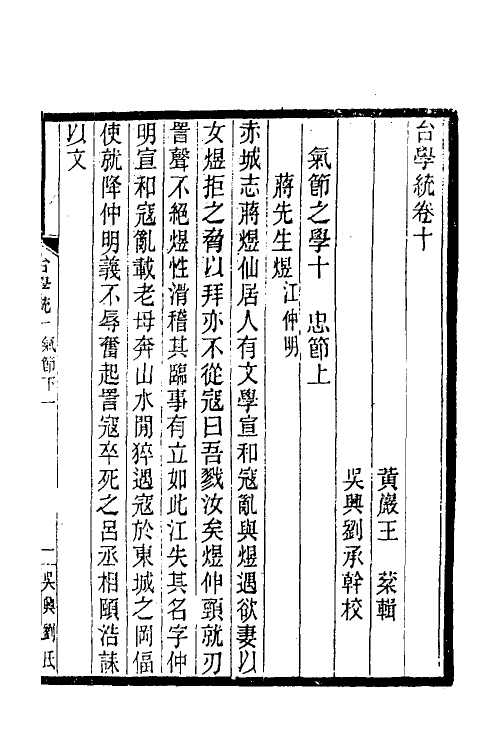 台學統卷十
黃巖王　棻輯
吳興劉承幹校
氣節之學十　忠節上
蔣先生煜江仲明
赤城志蔣煜仙居人有文學宣和寇亂與煜遇欲妻以
女煜拒之脅以拜亦不從寇曰吾戮汝矣煜伸頸就刃
詈聲不絕煜性滑稽其臨事有立如此江失其名字仲
明宣和寇亂載老母奔山水閒猝遇寇於東城之岡偪
使就降仲明義不辱奮起詈寇卒死之呂丞相頤浩誄
以文
台學統十氣節下一
一
吳興劉氏